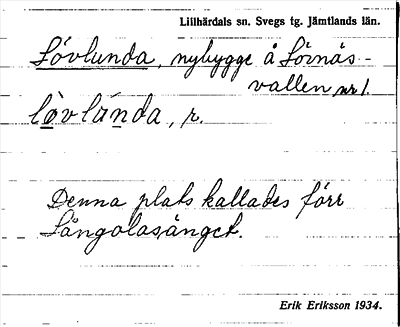 Lillhärdals sn. Svegs tg. Jämtlands län.
Lövlunda, nybygge å Lövnäs-
vallen nr 1.
lövlúnda, r.
Denna plats kallades förr
Långolasänget.
Erik Eriksson 1934.